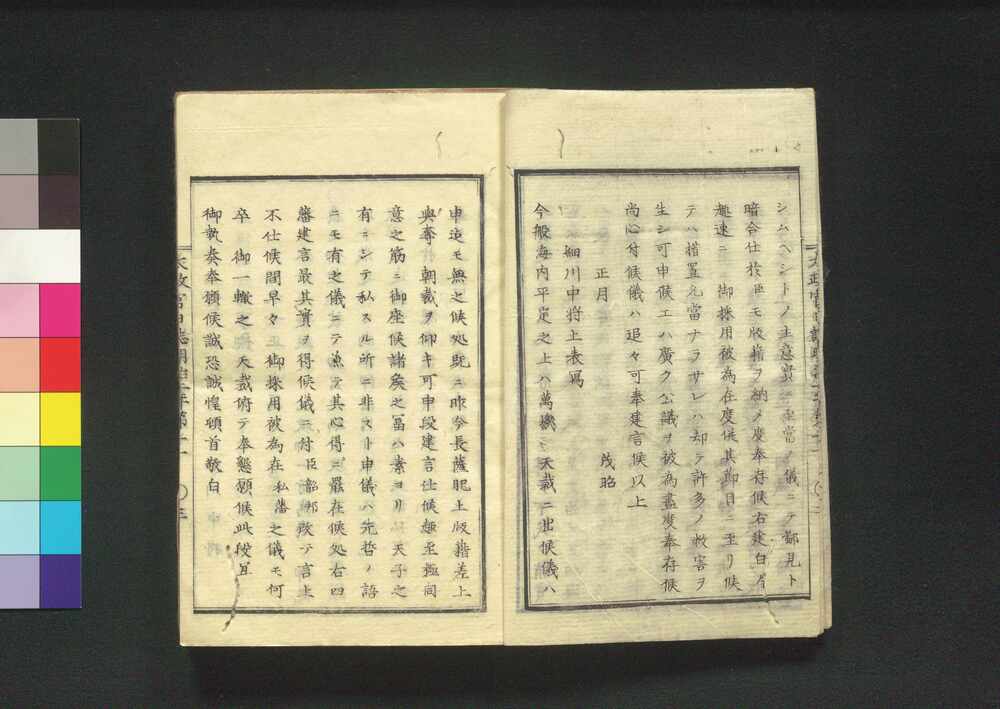 シムヘシトノ主意實ニ至當ノ儀ニテ鄙見ト
暗合仕於臣モ版籍ヲ納メ度奉存候右建白ノ
趣速ニ 御採用被為在度候其節目ニ至リ候
テハ措置允當ナラサレハ却テ許多ノ弊害ヲ
生シ可申候エハ廣ク公議ヲ被為盡度奉存候
尚心付候儀ハ追々可奉建言候以上
正月 茂昭
細川中将上表寫
今般海内平定之上ハ萬機ミ天裁ニ出候儀ハ
申迄モ無之候処既ニ昨冬長薩肥土版籍差上
與奪 朝裁ヲ仰キ可申段建言仕候趣至極同
意之筋ニ御座候諸矦之冨ハ素ヨリ 天子之
有ニシテ私スル所ニ非スト申儀ハ先哲ノ語
ニモ有之儀ニテ兼テ其心得ニ罷在候処右四
藩建言最其實ヲ得候儀ニ付臣韶邦敢テ言上
不仕候間早々 御採用被為在私藩之儀モ何
卒 御一轍之 天裁俯テ奉懇願候此段宜
御執奏奉願候誠恐誠惶頓首敬白
太政官日誌明治二年第十一 〇三